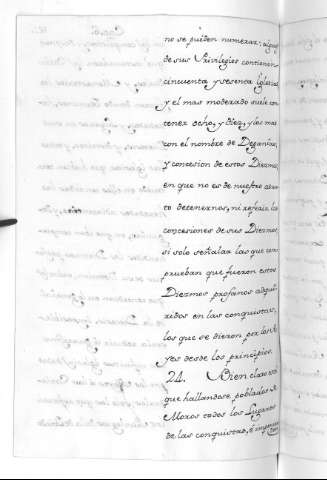 no se pueden numerar: algunos
de sus Privilegios contienen
cincuenta y sesenta Iglesias
y el mas moderado suele con
tener ocho, y diez, y las mas
con el nombre de Deganias,
y concesion de estos Diezmos,
en que no es de nuestro asun
to detenernos, ni referir las
concesiones de sus Diezmos,
si solo señalar las que com
prueban que fueron estos
Diezmos profanos adqui
ridos en las conquistas,
los que se dieron por los Re
yes desde los principios.
24. Bien claro está
que hallandose poblados de
Moros todos los Lugares
de las conquistas, ó